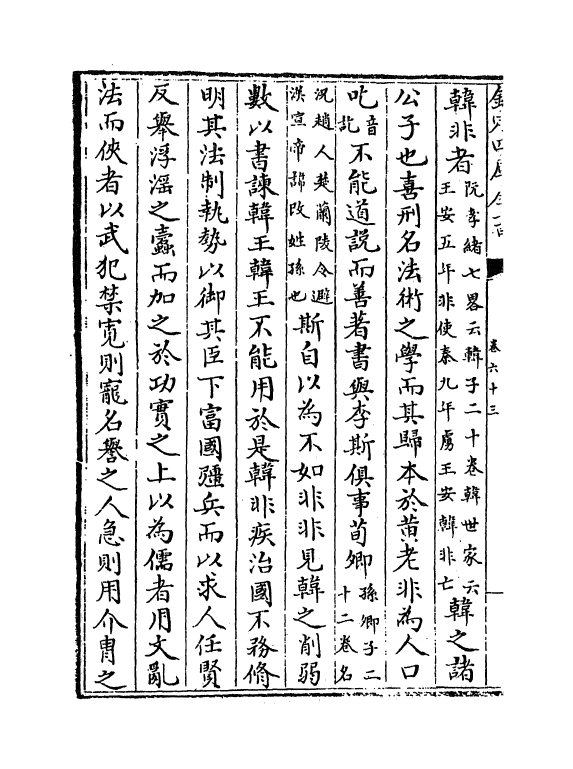 欽定四庫全書
卷六十三
韓非者阮孝緒七畧云韓子二十卷韓世家云王安五年非使秦九年虜王安韓非亡韓之諸
公子也喜刑名法術之學而其歸本於黄老非為人口
吃音訖不能道說而善著書與李斯俱事荀卿孫卿子二十二卷名
況趙人楚蘭陵令避漢宣帝諱改姓孫也斯自以為不如非非見韓之削弱
數以書諫韓王韓王不能用於是韓非疾治國不務脩
明其法制執勢以御其臣下富國彊兵而以求人任賢
反舉浮滛之蠹而加之於功實之上以為儒者用文亂
法而俠者以武犯禁寛則寵名譽之人急則用介胄之